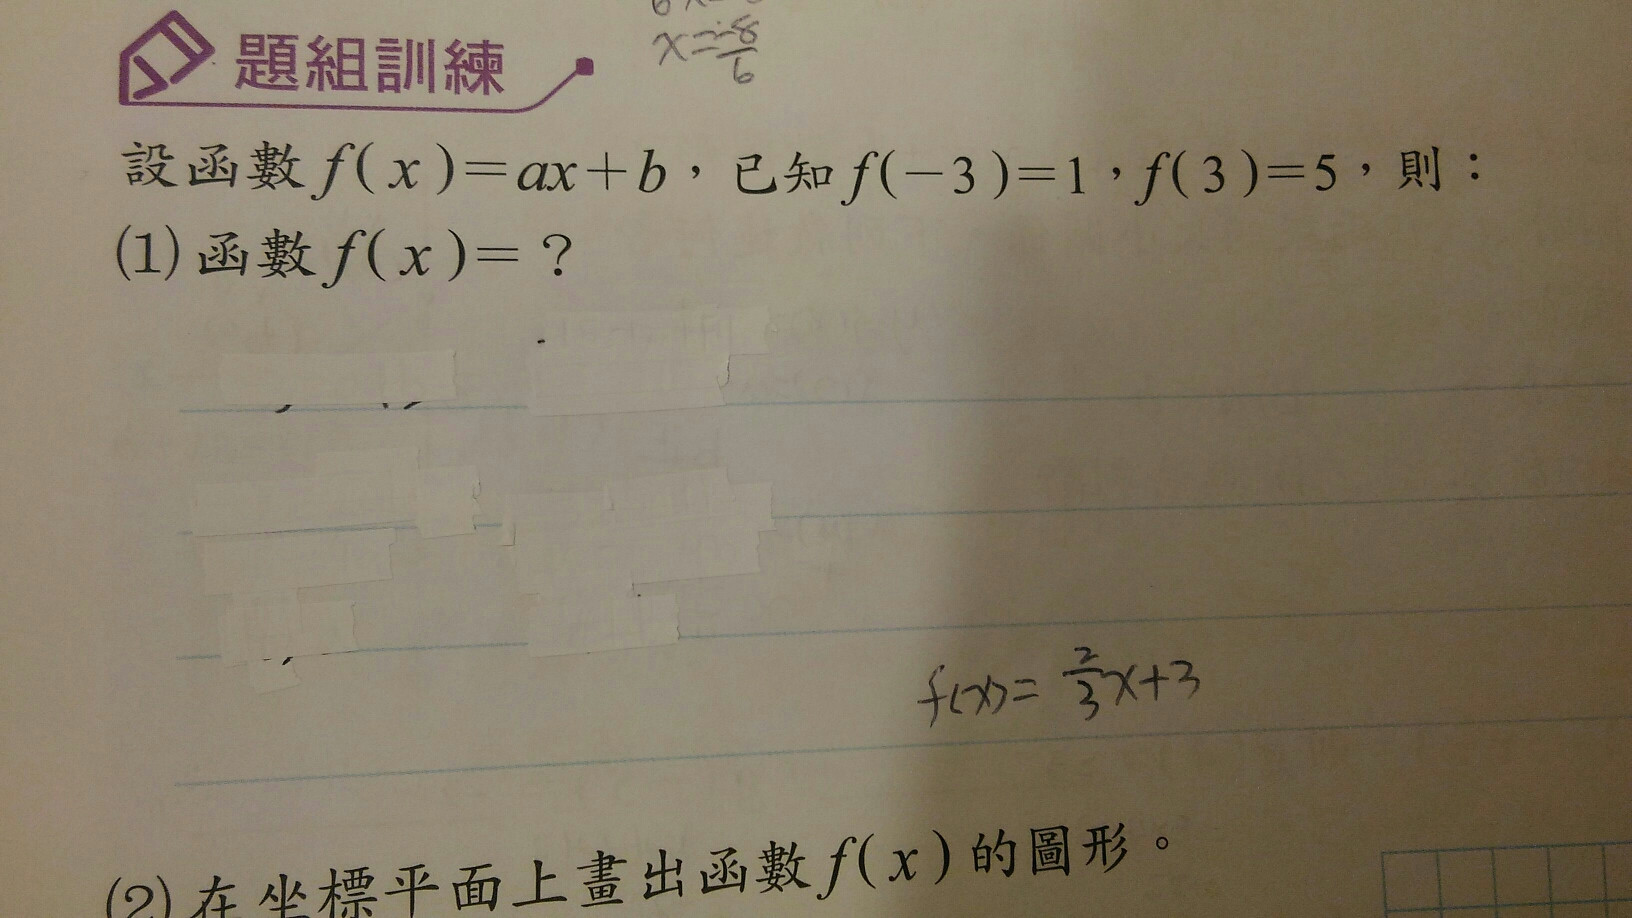 x=-8/6
題組訓練
設函數 f(x)=ax+b，已知 f(-3)=1，f(3)=5，則：
(1) 函數 f(x)=？
f(x)= 2/3 x+3
(2) 在坐標平面上畫出函數 f(x) 的圖形。